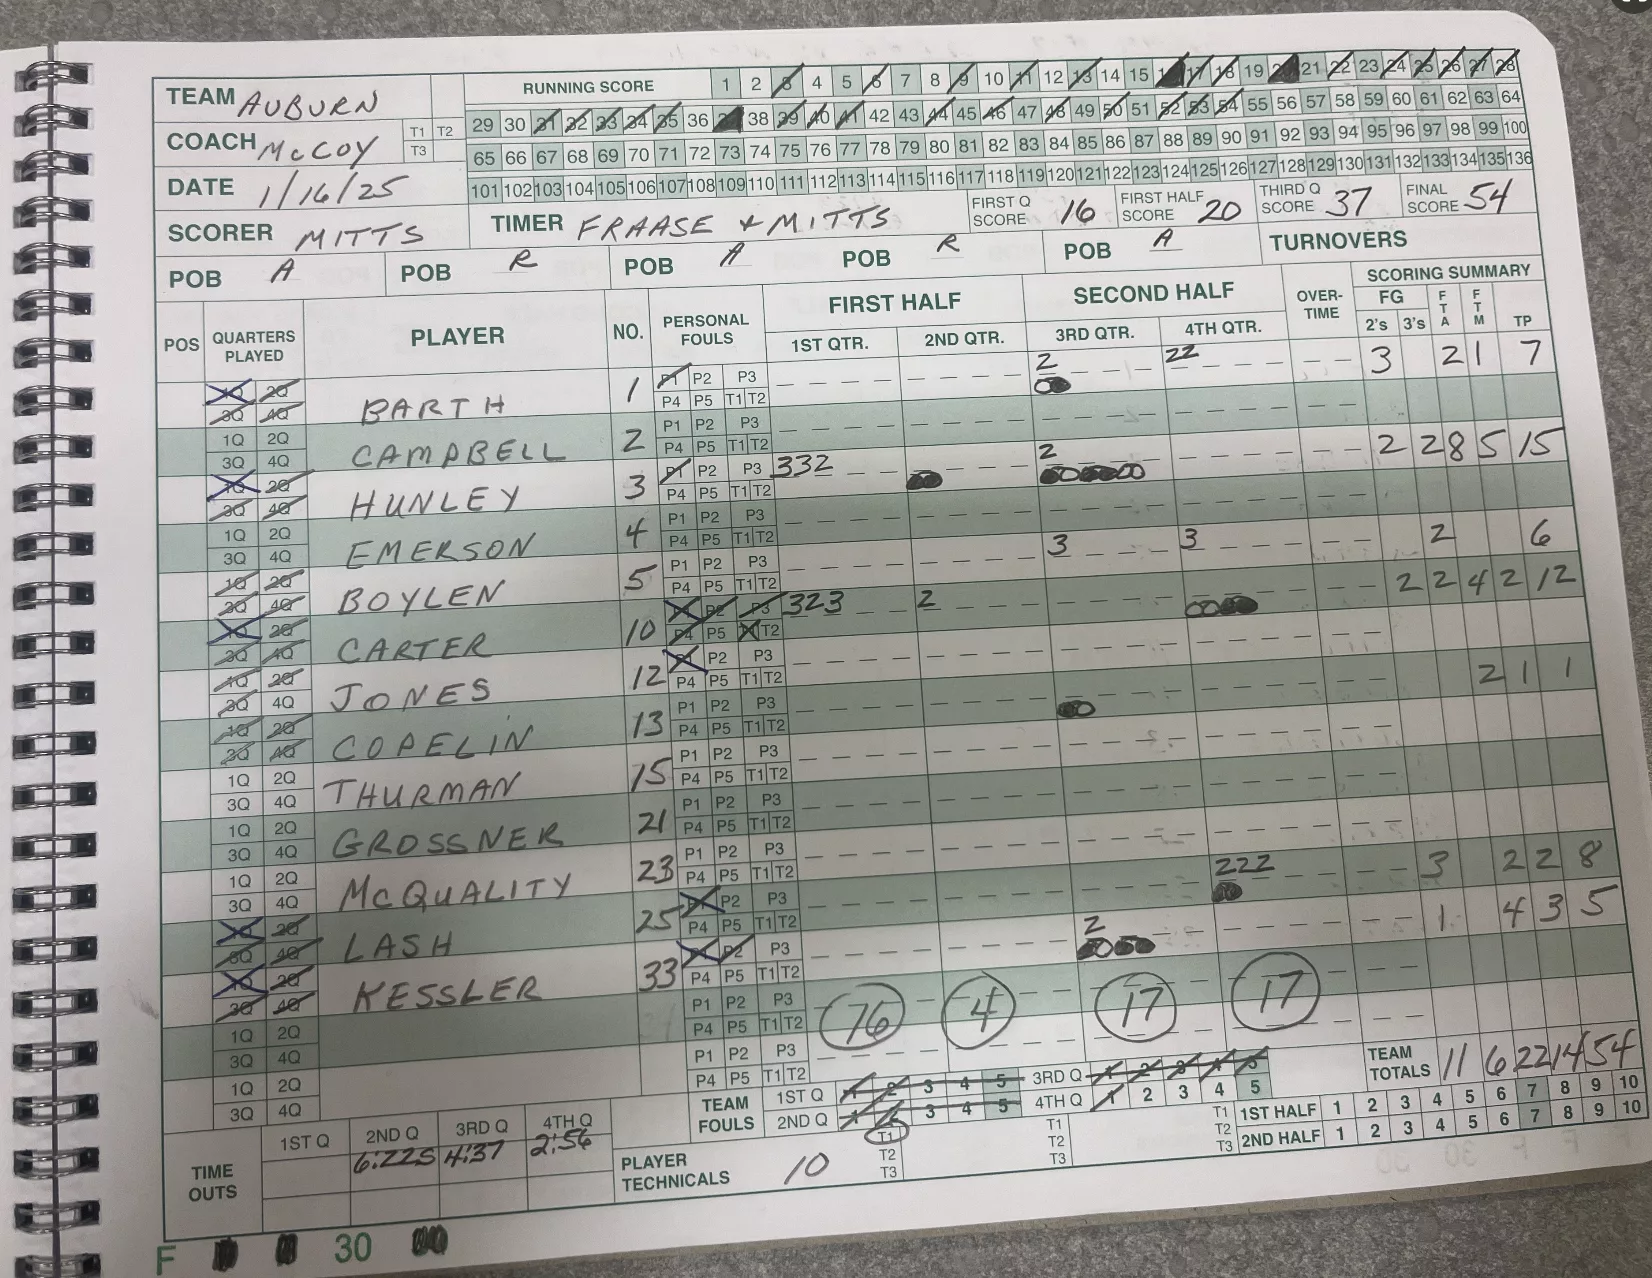 TEAM AUBURN RUNNING SCORE 1 2 3 4 5 6 7 8 9 10 11 12 13 14 15 16 17 18 19 20 21 22 23 24 25 26 27 28
29 30 31 32 33 34 35 36 37 38 39 40 41 42 43 44 45 46 47 48 49 50 51 52 53 54 55 56 57 58 59 60 61 62 63 64
COACH McCOY T1 T2 T3 65 66 67 68 69 70 71 72 73 74 75 76 77 78 79 80 81 82 83 84 85 86 87 88 89 90 91 92 93 94 95 96 97 98 99 100
DATE 1/16/25 101 102 103 104 105 106 107 108 109 110 111 112 113 114 115 116 117 118 119 120 121 122 123 124 125 126 127 128 129 130 131 132 133 134 135 136
SCORER MITTS TIMER FRAASE & MITTS FIRST Q SCORE 16 FIRST HALF SCORE 20 THIRD Q SCORE 37 FINAL SCORE 54
POB A POB R POB A POB R POB A TURNOVERS
POS QUARTERS PLAYED PLAYER NO. PERSONAL FOULS FIRST HALF SECOND HALF OVER-TIME SCORING SUMMARY
1ST QTR. 2ND QTR. 3RD QTR. 4TH QTR. FG 2's 3's FTA FTM TP
1Q 2Q 3Q 4Q BARTH 1 P1 P2 P3 P4 P5 T1 T2 2 22 3 2 1 7
1Q 2Q 3Q 4Q CAMPBELL 2 P1 P2 P3 P4 P5 T1 T2
1Q 2Q 3Q 4Q HUNLEY 3 P1 P2 P3 P4 P5 T1 T2 332 2 2 2 8 5 15
1Q 2Q 3Q 4Q EMERSON 4 P1 P2 P3 P4 P5 T1 T2
1Q 2Q 3Q 4Q BOYLEN 5 P1 P2 P3 P4 P5 T1 T2 3 3 2 6
1Q 2Q 3Q 4Q CARTER 10 P1 P2 P3 P4 P5 T1 T2 323 2 2 2 4 2 12
1Q 2Q 3Q 4Q JONES 12 P1 P2 P3 P4 P5 T1 T2
1Q 2Q 3Q 4Q COPELIN 13 P1 P2 P3 P4 P5 T1 T2 2 1 1
1Q 2Q 3Q 4Q THURMAN 15 P1 P2 P3 P4 P5 T1 T2
1Q 2Q 3Q 4Q GROSSNER 21 P1 P2 P3 P4 P5 T1 T2
1Q 2Q 3Q 4Q McQUALITY 23 P1 P2 P3 P4 P5 T1 T2
1Q 2Q 3Q 4Q LASH 25 P1 P2 P3 P4 P5 T1 T2 222 3 2 2 8
1Q 2Q 3Q 4Q KESSLER 33 P1 P2 P3 P4 P5 T1 T2 2 1 4 3 5
1Q 2Q 3Q 4Q P1 P2 P3 P4 P5 T1 T2 16 4 17 17
1Q 2Q 3Q 4Q P1 P2 P3 P4 P5 T1 T2 TEAM TOTALS 11 6 22 14 54
TEAM FOULS 1ST Q 1 2 3 4 5 3RD Q 1 2 3 4 5 1ST HALF 1 2 3 4 5 6 7 8 9 10
2ND Q 1 2 3 4 5 4TH Q 1 2 3 4 5 2ND HALF 1 2 3 4 5 6 7 8 9 10
TIME OUTS 1ST Q 2ND Q 3RD Q 4TH Q
6:22S 4:37 2:56
PLAYER TECHNICALS 10 T1 T2 T3 T1 T2 T3 T1 T2 T3
F 30